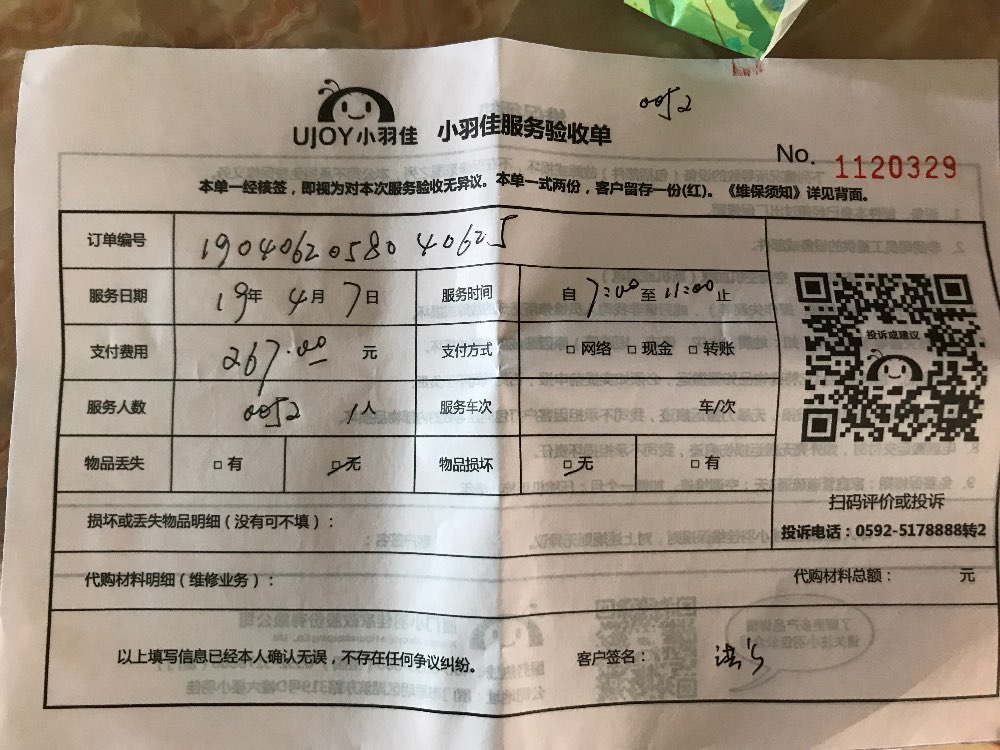 0052
UJOY小羽佳 小羽佳服务验收单
No. 1120329
本单一经核签，即视为对本次服务验收无异议。本单一式两份，客户留存一份(红)。《维保须知》详见背面。
订单编号 19040620580 40625
服务日期 19年 4月 7日 服务时间 自 7:00 至 11:00 止
支付费用 267.00 元 支付方式 □ 网络 □ 现金 □ 转账
服务人数 0052 1人 服务车次 车/次
物品丢失 □ 有 □ 无 物品损坏 □ 无 □ 有
投诉或建议
扫码评价或投诉
投诉电话：0592-5178888转2
损坏或丢失物品明细（没有可不填）：
代购材料明细（维修业务）： 代购材料总额： 元
以上填写信息已经本人确认无误，不存在任何争议纠纷。 客户签名：